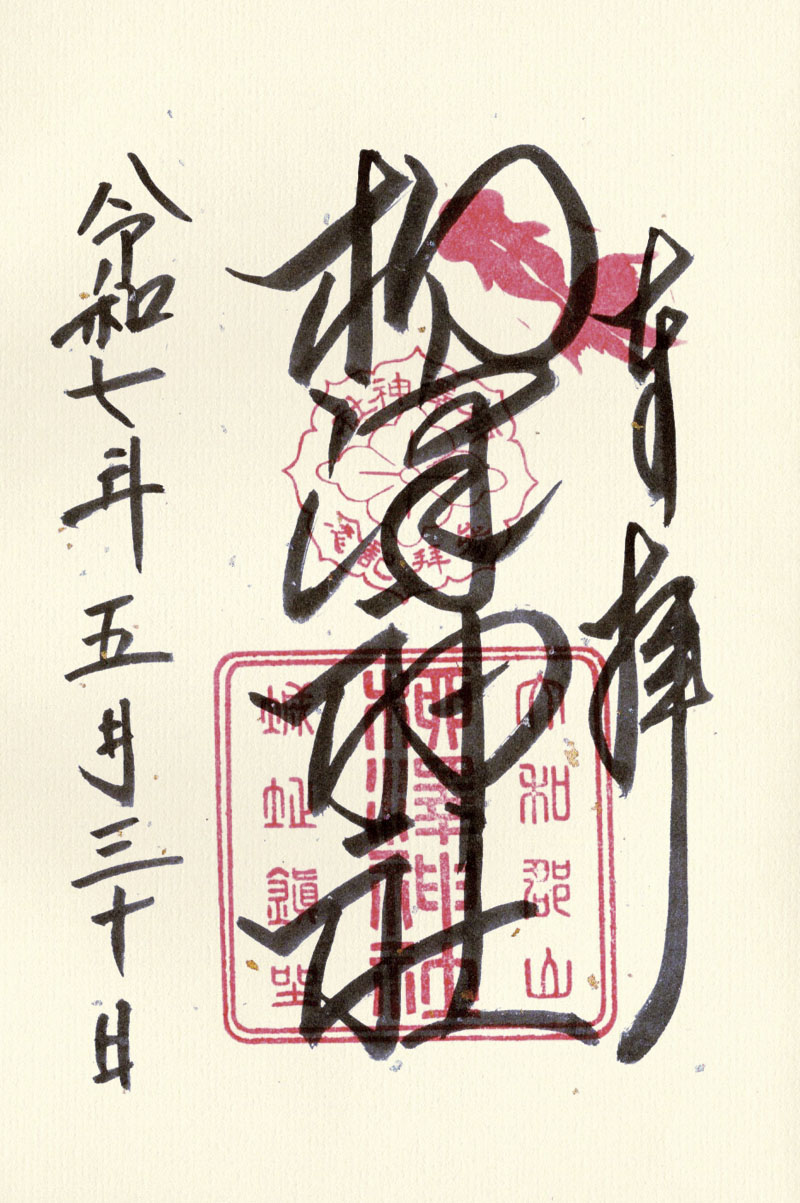 奉拝
柳澤神社
大和郡山
柳澤神社
城址鎮座
令和七年五月三十日